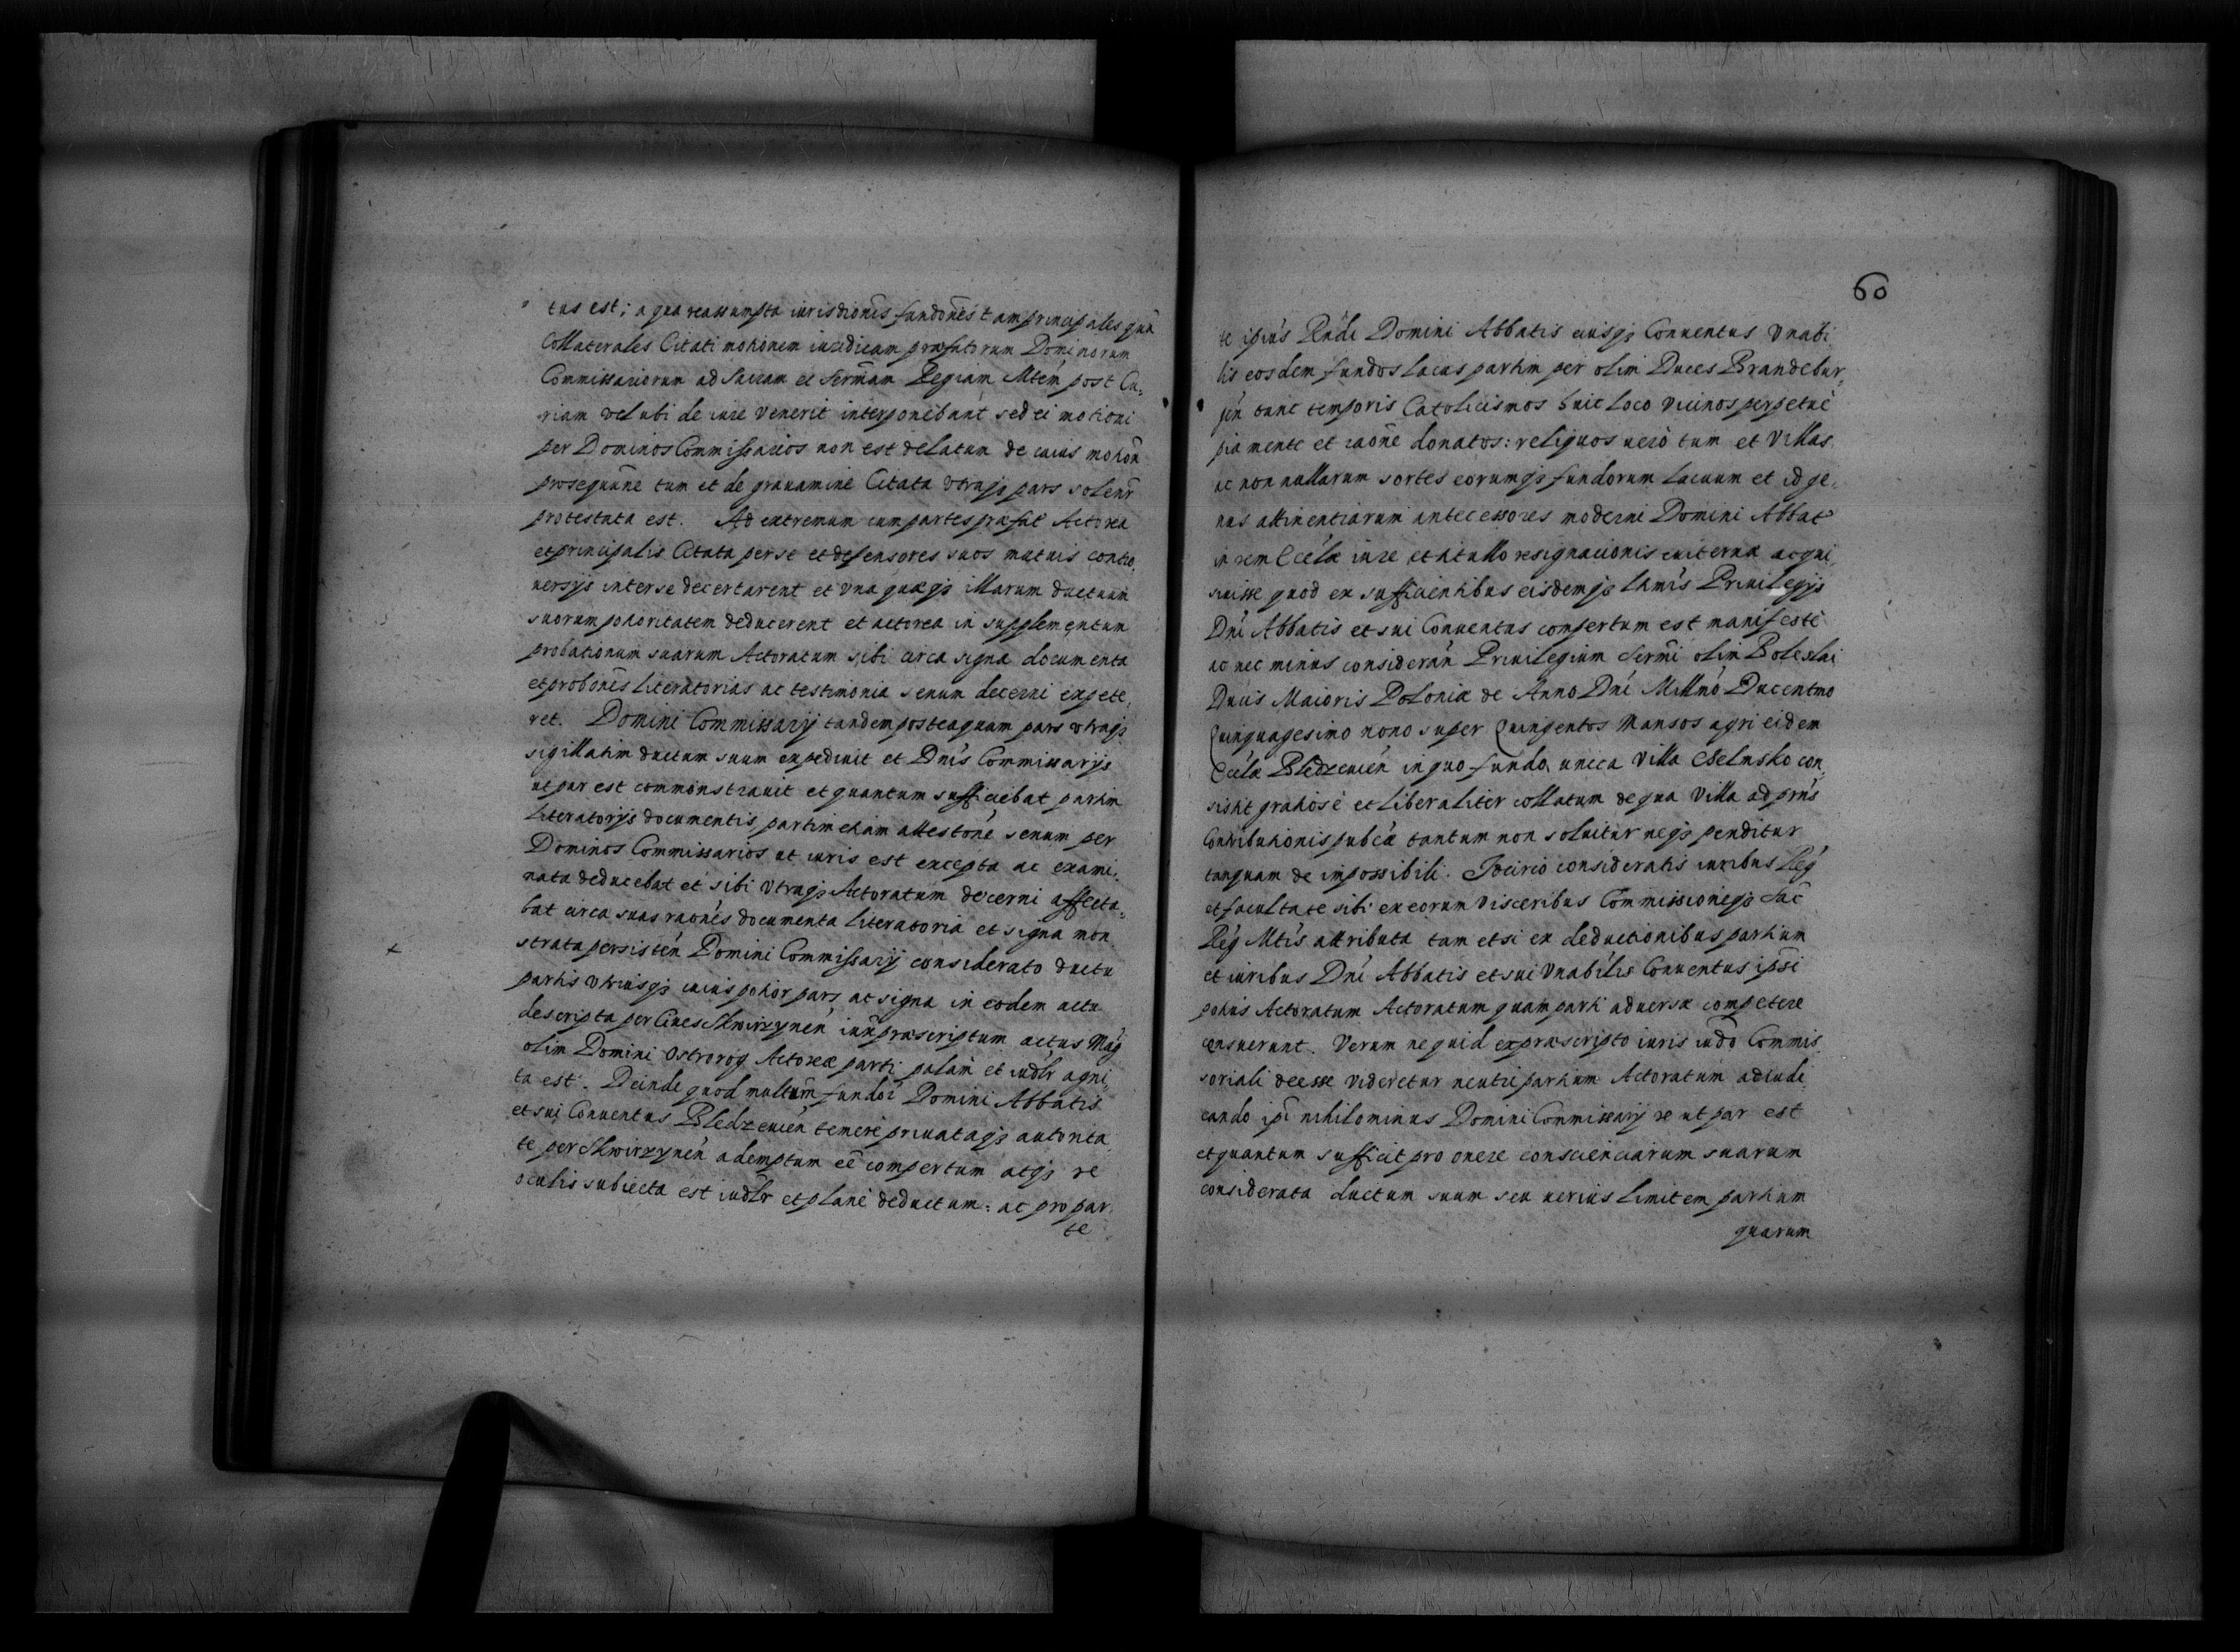 tus est; a qua reassumpta iurisdionis fundones tam principales quā
Collaterales Citati motionem iuridicam præfatorum Dominorum
Commissariorum ad Sacram et Sermam Regiam Mtem post Cu,
riam vel ubi de iure venerit interponebant sed ei motioni
per Dominos Commissarios non est delatum de cuius motion
prosequōne tum et de grauamine Citata vtraqȝ pars solenr
protestata est. Ad extremum cum partes præfat Actorea
et principalis Citata per se et defensores suos mutuis contro,
uersijs inter se decertarent et vna quæqȝ illarum ductuum
suorum potioritatem deducerent et actorea in supplementum
probationum suarum Actoratum sibi circa signa documenta
et probones literatorias ac testimonia senum decerni expete,
ret. Domini Commissarij tandem posteaquam pars vtraqȝ
sigillatim ductum suum expediuit et Dnis Commissarijs
ut par est commonstrauit et quantum sufficiebat partim
Literatorijs documentis, partim etiam attestone senum per
Dominos Commissarios ut iuris est excepta ac exami,
nata deducebat et sibi vtraqȝ Actoratum decerni affecta,
bat circa suas raones documenta literatoria et signa mon
strata persisten Domini Commissarij considerato ductu
partis vtriusqȝ cuius potior pars ac signa in eodem actu
descripta per Ciues Skwirzynen iuxn præscriptum actus Mag
olim Domini Ostrorog Actoreæ parti palam et iudlr agni,
ta est. Deinde quod multum fundor Domini Abbatis
et sui Conuentus Bledzeuien temere priuataqȝ autorita
te per Skwirzynen ademptum eē compertum atqȝ re
oculis subiecta est iudlr et plane deductum: ac pro par
te
60
te ipius Rndi Domini Abbatis eiusqȝ Conuentus Vnabi
lis eosdem fundos lacus partim per olim Duces Brandebur,
gen tunc temporis Catolicismos huic loco vicinos perpetue
pia mente et raone donatos: reliquos uero tum et Villas
ac non nullarum sortes eorumqȝ fundorum lacuum et id ge,
nus attinentiarum antecessores moderni Domini Abbat
in rem Ecclæ iure et titullo resignacionis euiternæ acqui,
siuisse quod ex sufficientibus eisdemqȝ lamis Priuilegijs
Dni Abbatis et sui Conuentus compertum est manifeste
ac nec minus consideran Priuilegium Sermi olim Boleslai
Ducis Maioris Poloniæ de Anno Dni Millmo Ducentmo
Quinquagesimo nono super Quingentos Mansos agri eidem
Ecclæ Bledzeuien in quo fundo unica Villa Chelmsko con,
sistit gratiose et liberaliter collatum de qua Villa ad prns
Contributionis publcæ tantum non soluitur neqȝ penditur
tanquam de impossibili. Idcirco consideratis iuribus Reg
et facultate sibi ex eorum visceribus Commissioneqȝ Sac
Reg Mtis attributa tam etsi ex deductionibus partium
et iuribus Dni Abbatis et sui Vnabilis Conuentus ipsi
potius Actoratum Actoratum quam parti aduersæ competere
censuerunt. Verum ne quid ex præscripto iuris iudo Commis
soriali deesse videretur neutri partium Actoratum adiudi
cando ipi nihilominus Domini Commissarij re ut par est
et quantum sufficit pro onere conscienciarum suarum
considerata ductum suum seu uerius limitem partium
quarum